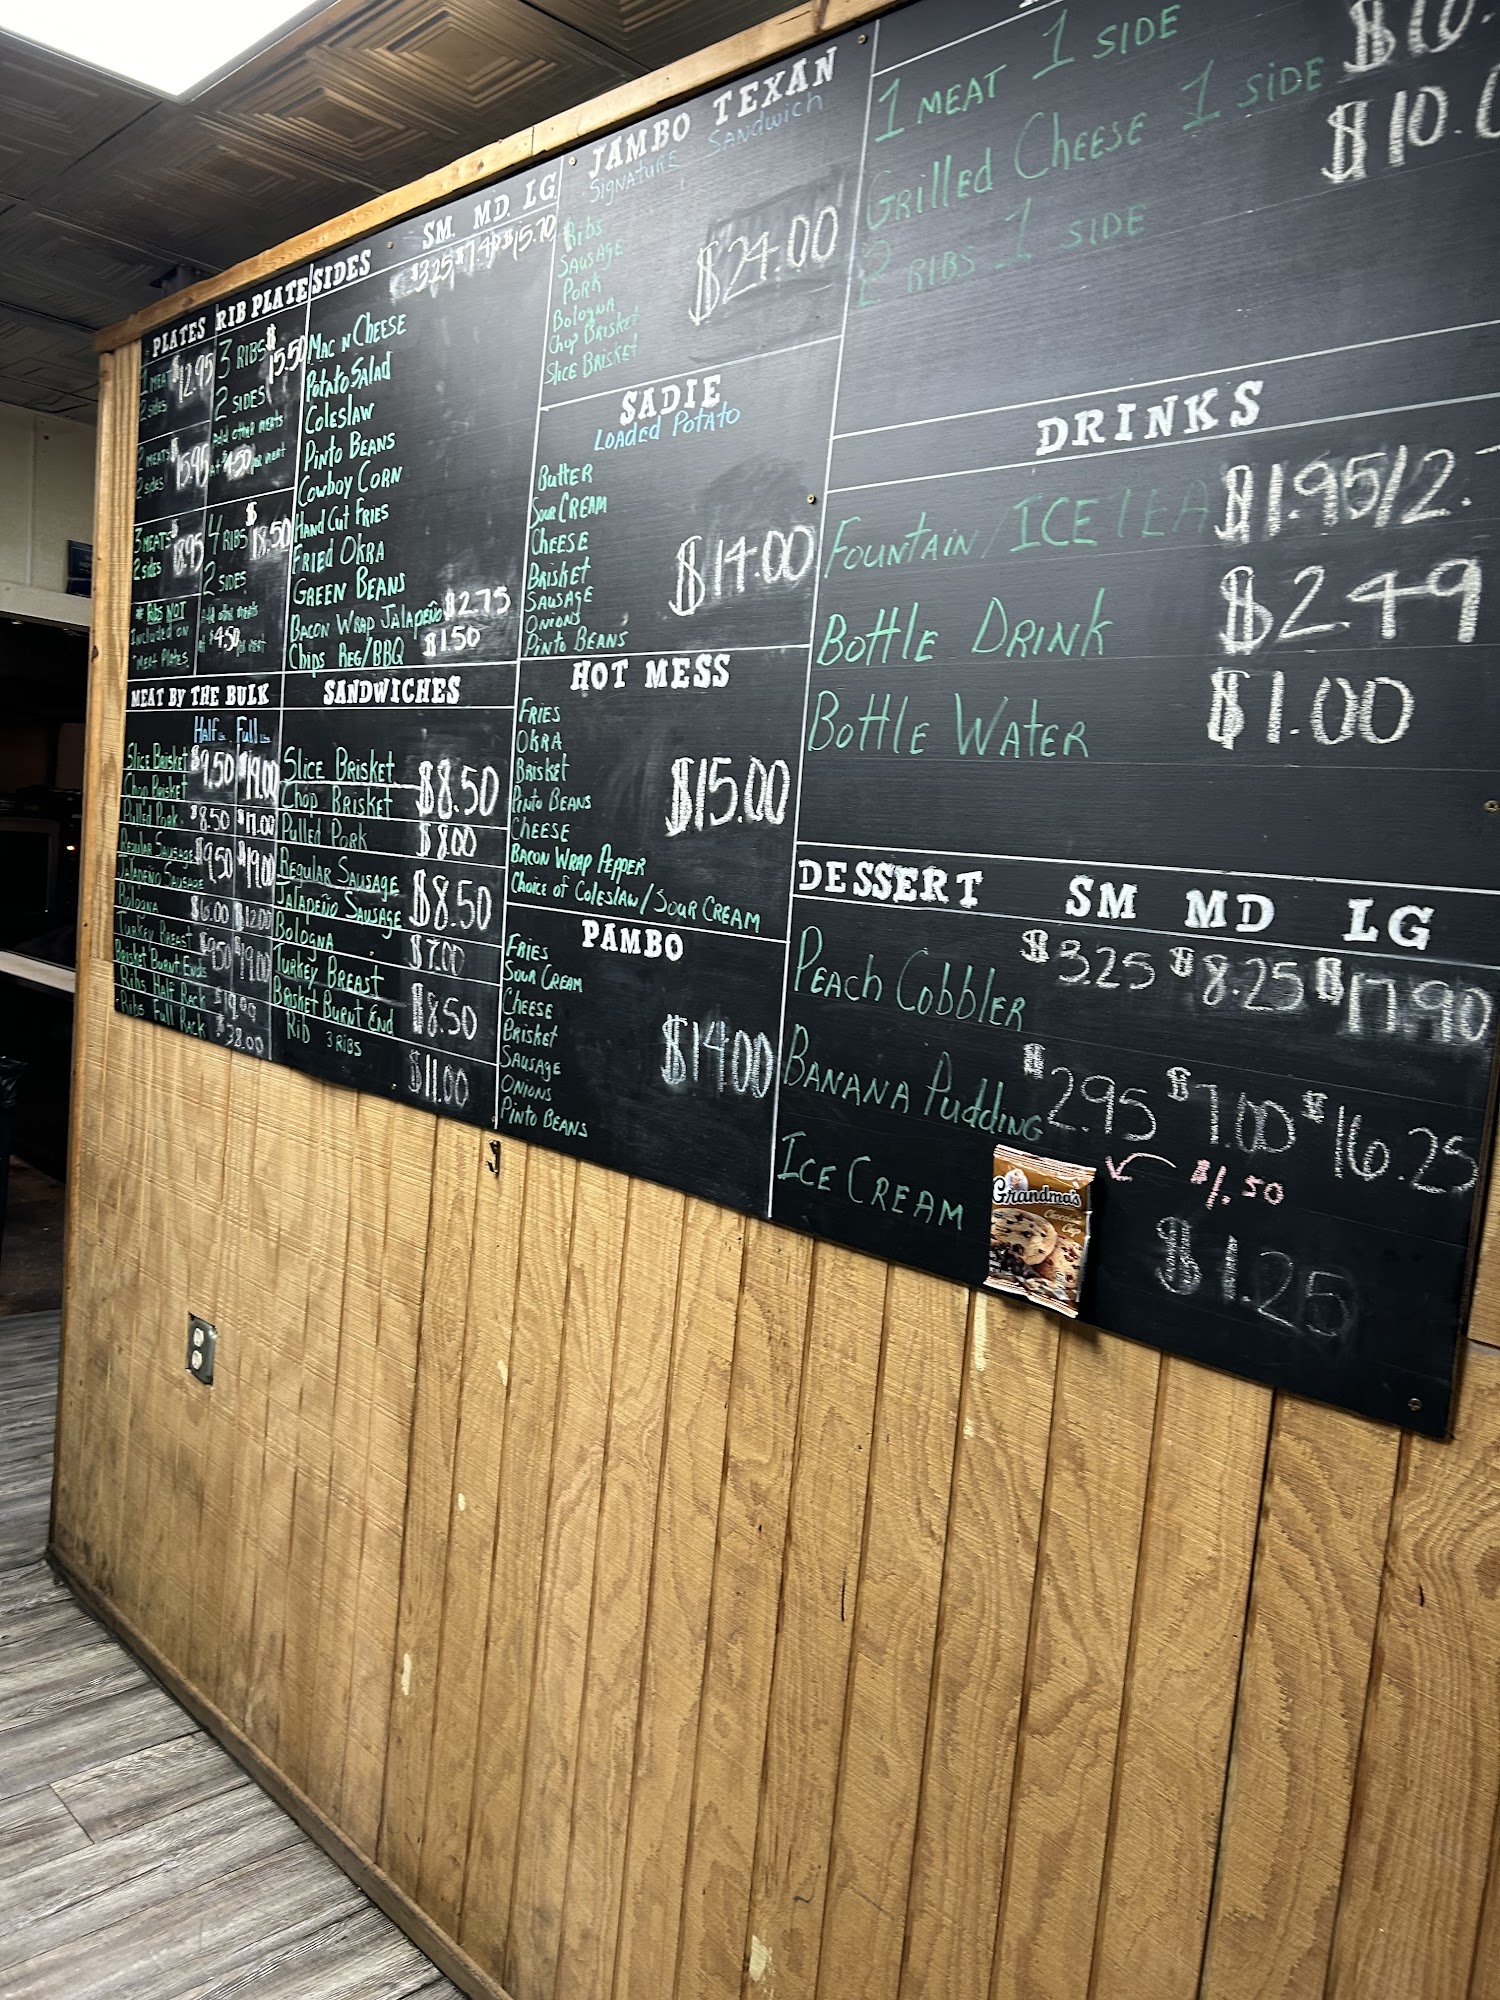 PLATES
1 MEAT $12.95
2 sides
2 MEATS $15.95
2 sides
3 MEATS $18.95
2 sides
* Ribs NOT
Included on
"Meat Plates"
RIB PLATE
3 RIBS $15.50
2 SIDES
Add other meats
at $4.50 per meat
4 RIBS $18.50
2 SIDES
Add other meats
at $4.50 per meat
SIDES SM. MD. LG.
$3.25 $7.40 $15.70
Mac N Cheese
Potato Salad
Coleslaw
Pinto Beans
Cowboy Corn
Hand Cut Fries
Fried Okra
Green Beans
Bacon Wrap Jalapeño $2.75
Chips Reg/BBQ $1.50
MEAT BY THE BULK
Half Lb. Full Lb.
Slice Brisket $9.50 $19.00
Chop Brisket
Pulled Pork $8.50 $17.00
Regular Sausage $9.50 $19.00
Jalapeño Sausage
Bologna $12.00
Turkey Breast $9.50 $19.00
Brisket Burnt Ends
Ribs Half Rack $19.00
Ribs Full Rack $38.00
SANDWICHES
Slice Brisket $8.50
Chop Brisket
Pulled Pork $8.00
Regular Sausage $8.50
Jalapeño Sausage
Bologna $7.00
Turkey Breast $8.50
Brisket Burnt End
Rib 3 RIBS $11.00
JAMBO TEXAN
Signature Sandwich
Ribs
Sausage
Pork
Bologna
Chop Brisket
Slice Brisket
$24.00
SADIE
Loaded Potato
Butter
Sour Cream
Cheese
Brisket
Sausage
Onions
Pinto Beans
$14.00
HOT MESS
Fries
Okra
Brisket
Pinto Beans
Cheese
Bacon Wrap Pepper
Choice of Coleslaw/Sour Cream
$15.00
PAMBO
Fries
Sour Cream
Cheese
Brisket
Sausage
Onions
Pinto Beans
$14.00
1 MEAT 1 SIDE
Grilled Cheese 1 SIDE
2 RIBS 1 SIDE
DRINKS
Fountain, ICE TEA $1.95/2.
Bottle Drink $2.49
Bottle Water $1.00
DESSERT SM MD LG
Peach Cobbler $3.25 $8.25 $17.90
Banana Pudding $2.95 $7.00 $16.25
$1.50
Ice Cream $1.25
Grandma's
Chocolate
Chip